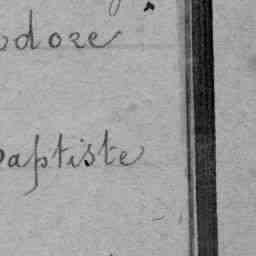 odore
baptiste